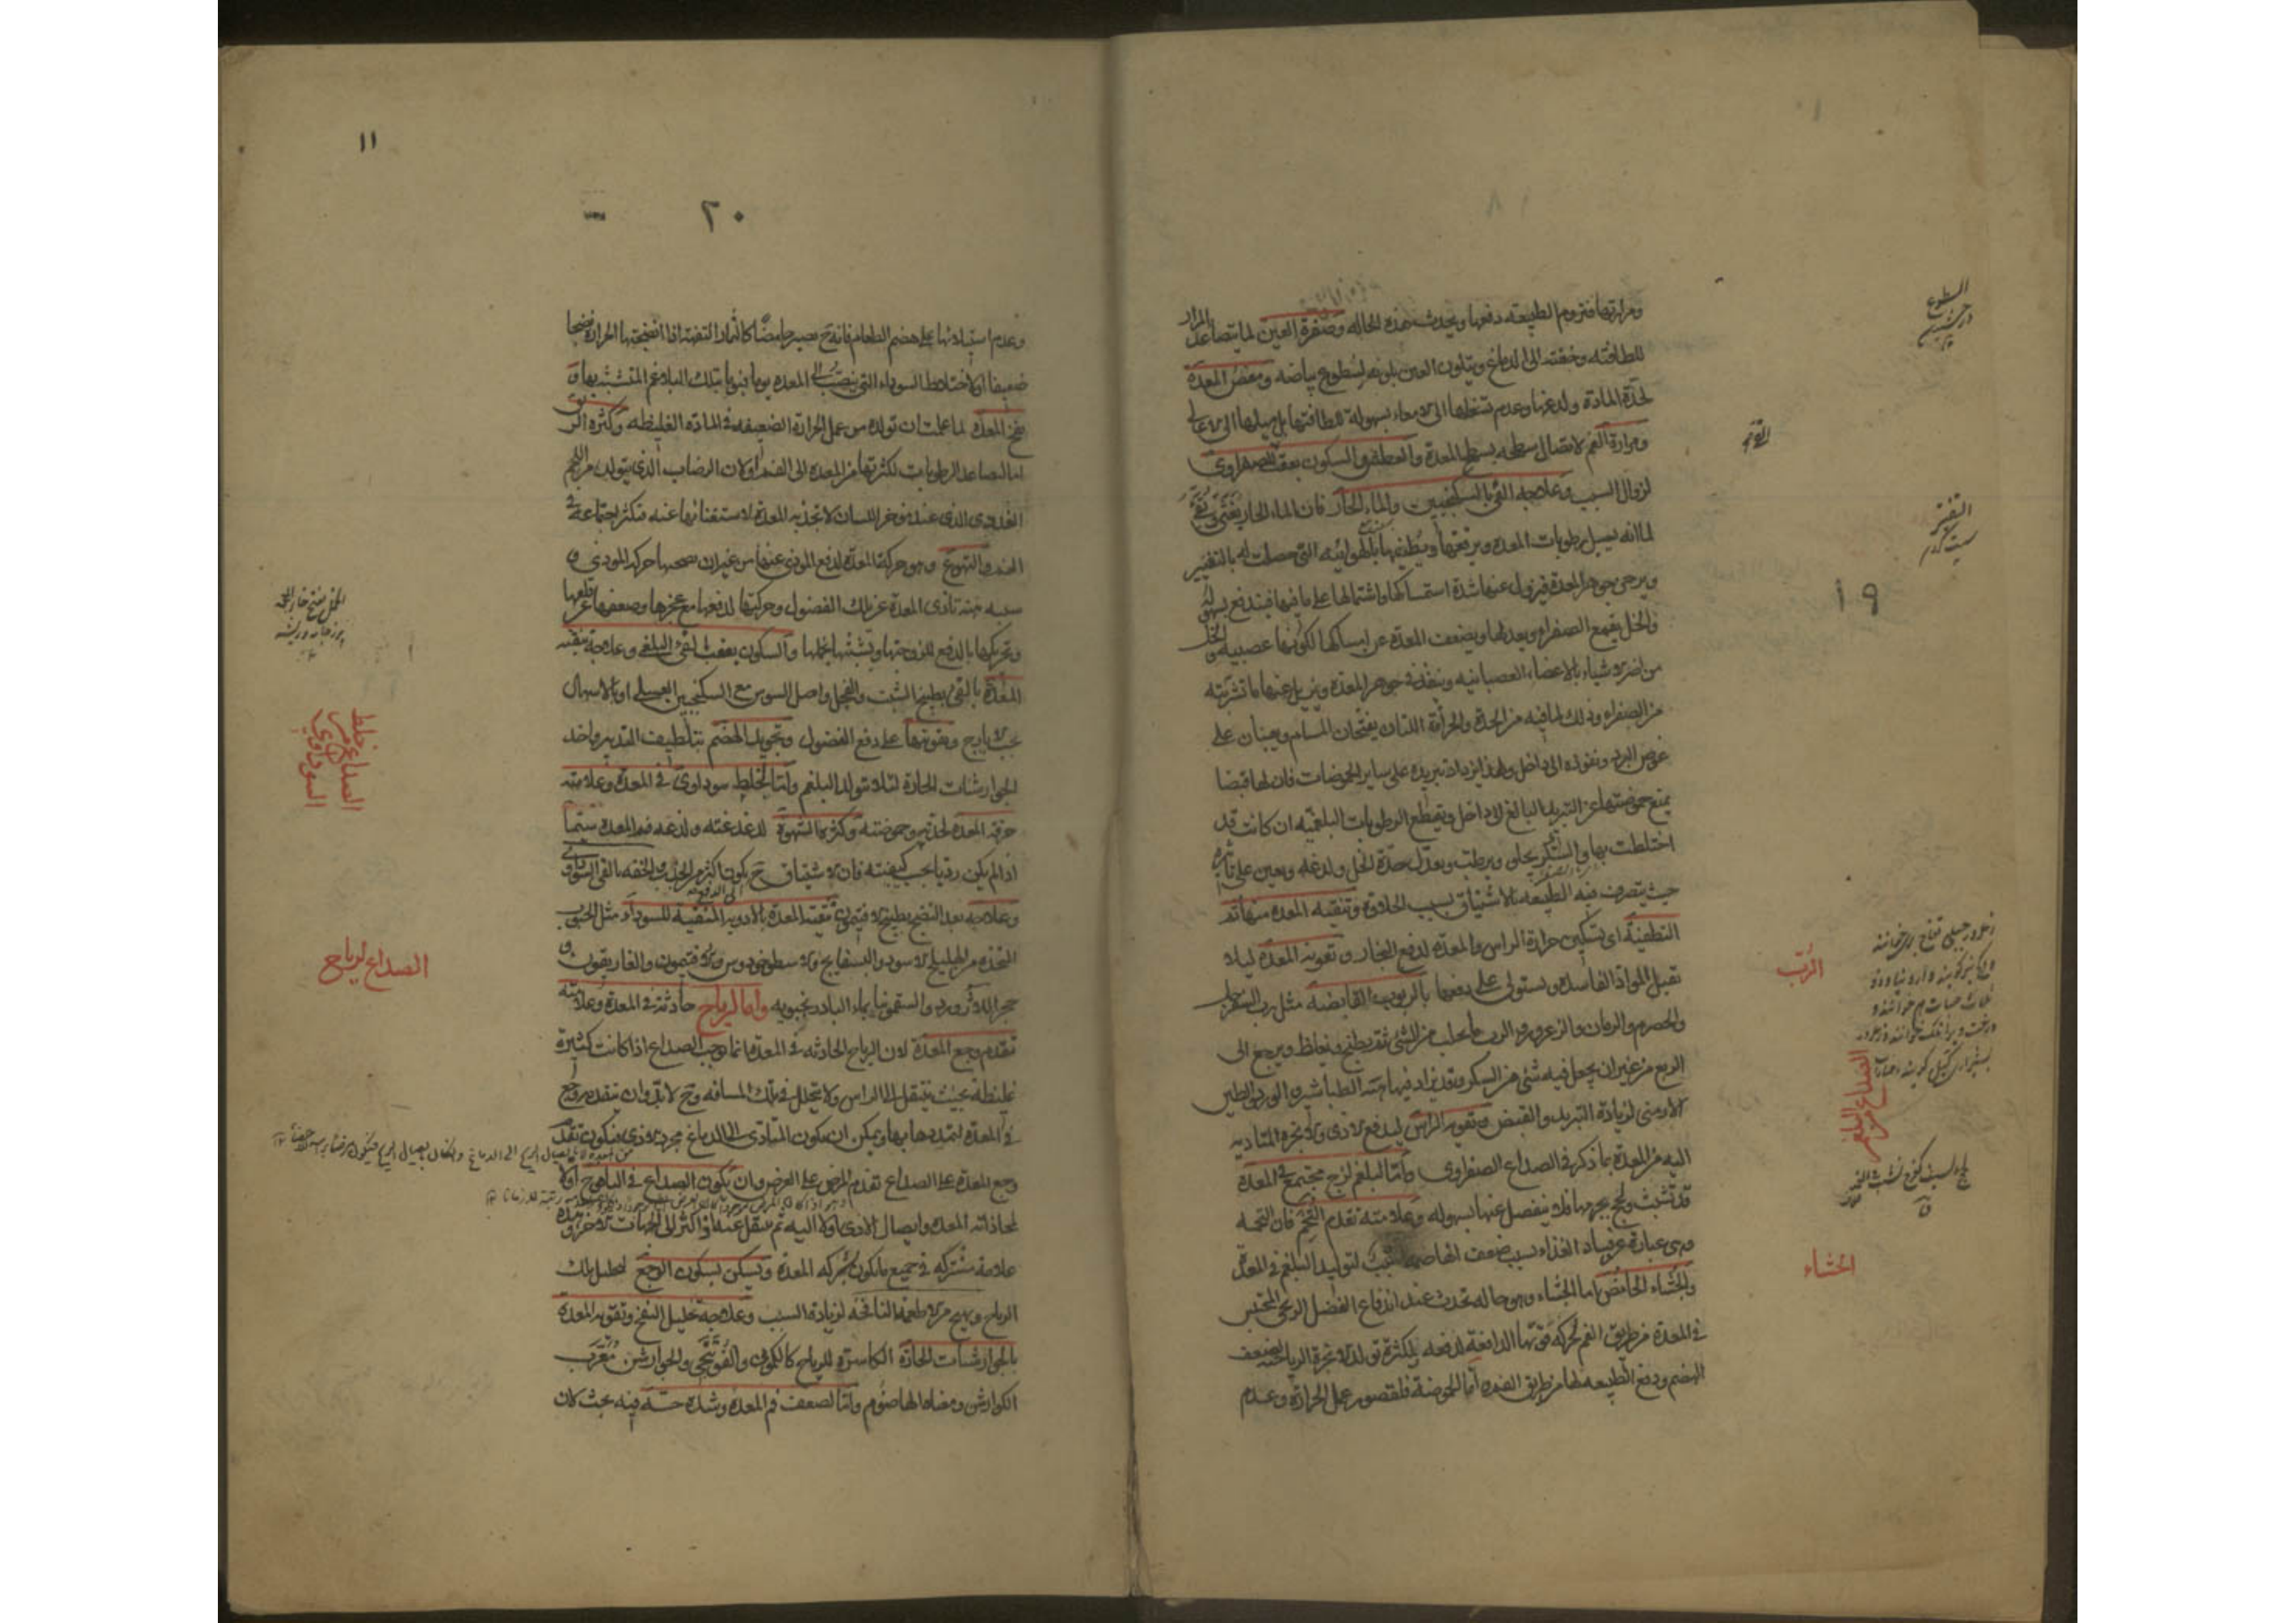 ومرارتها فتروم الطبيعه دفعها ويحدث هذه الحاله وصفرة العين لما يتصاعد المرار
للطافته وخفته الى الدماغ ويتلون العين بلونه لسطوع بياضه ومغص المعدة
لحدة المادة ولذعها وعدم تسفلها الى الامعاء بسهولة للطافتها بل ميلها الى الاعالى
ومرارة الفم لاتصال سطحه بسطح المعدة والعطش والسكون بعقب القى الصفراوى
لزوال السبب وعلاجه القئ بالسكنجبين والماء الحار فان الماء الحار يغثى ويقئ
لما انه يسيل رطوبات المعدة ويرققها ويطفيها بالهوائيه التى حصلت له بالتفتير
ويرخى جوهر المعدة فيزول عنها شدة استمساكها واشتمالها على ما فيها فيندفع بسهولة
والخل يقمع الصفراء ويعدلها ويضعف المعدة عن امساكها لكونها عصبيه والخل
من اضر الاشياء بالاعضاء العصبانيه وينفذ فى جوهر المعدة ويزيل عنها ما تشربته
من الصفراء وذلك لما فيه من الحدة والحرافة اللتان يفتحان المسام ويعينان على
غوص البرد ونفوذه الى داخل ولهذا يزداد تبريده على ساير الحموضات فان لها قبضا
يمنع حموضتها عن التبريد البالغ الى داخل ويقطع الرطوبات البلغميه ان كانت قد
اختلطت بها والسكر يجلى ويرطب ويعدل حدة الخل ولذعه ويعين على تاثيره
حيث يتصرف فيه الطبيعه بالاشتياق بسبب الحلاوة وتنقيه المعدة منها ثم
التطفية اى تسكين حرارة الراس والمعدة لدفع البخار وتقويه المعدة ليلا
تقبل المواد الفاسدة ويستولى على دفعها بالربوب القابضة مثل رب السفرجل
والحصرم والرمان والزعرور والرب ما يحلب من الشئ ثم يطبخ ويغلظ ويرجع الى
الربع من غير ان يجعل فيه شئ من السكر وقد يزاد فيها من الطباشير والورد والطين
الارمنى لزيادة التبريد والقبض وتقويه الراس ليدفع الاذى والابخرة المتاديه
اليه من المعدة بما ذكر فى الصداع الصفراوى واما البلغم لزج مجتمع فى المعدة
قد تشبث ولحج بجرمها فلا ينفصل عنها بسهوله وعلامته تقدم التخم فان التخمه
وهى عبارة عن فساد الغذاء بسبب ضعف الهاضمه سبب لتوليد البلغم فى المعدة
والجشاء الحامض اما الجشاء وهو حاله تحدث عند اندفاع الفضل الريحى المحتبس
فى المعدة من طريق الفم لحركه قوتها الدافعة لدفعه فلكثرة تولد الابخرة الرياحيه لضعف
الهضم ودفع الطبيعه لها من طريق الفم واما الحموضة فلقصور عمل الحرارة وعدم
الرب
الصداع من البلغم
الجشاء
١٩
١١
٢٠
وعدم استيلائها على هضم الطعام فانه ح يصير حامضا كالثمار التفهة اذا انضجتها الحرارة نضجا
ضعيفا او لاختلاط السوداء التى ينصب الى المعدة يوما فيوما بتلك البلاغم المتشبثه بها و
نفخ المعدة لما علمت ان تولده من عمل الحرارة الضعيفه فى المادة الغليظه وكثرة الريق
اما لتصاعد الرطوبات لكثرتها من المعدة الى الفم او لان الرضاب الذى يتولد من اللحم
الغددى الذى عند مؤخر اللسان لا تجذبه المعدة لاستغنائها عنه فيكثر اجتماعه فى
الفم والتهوع وهو حركة المعدة لدفع الموذى عنها من غير ان يصحبها حركه الموذى و
سببه هنا تاذى المعدة عن تلك الفضول وحركتها لدفعها مع عجزها وضعفها عن قلعها
وتحريكها بالدفع للزوجتها وتشبثها بخملها والسكون بعقب القئ البلغمى وعلاجه تنقيه
المعدة بالقى بطبيخ الشبت والفجل واصل السوس مع السكنجبين العسلى او بالاسهال
بحب الايارج وتقويتها على دفع الفضول وتجويد الهضم بتلطيف التدبير واخذ
الجوارشنات الحارة لئلا يتولد البلغم واما لخلط سوداوى فى المعدة وعلامته
حرقة المعدة لحدته وحموضته وكثرة الشهوة لدغدغته ولذعه فم المعدة سيما
اذا لم يكن رديا بحسب كيفيته فان الاشتياق ح يكون اكثر من الجذب والخفه بالقى السوداوى
وعلاجه بعد النضج بطبيخ الافتيمون تنقية المعدة بالادويه المنقية للسوداء مثل الحبوب
المتخذة من الهليلج الاسود والبسفايج والاسطوخودوس والافتيمون والغاريقون و
حجر اللازورد والسقمونيا بماء البادرنجبويه واما لرياح حادثة فى المعدة وعلامته
تقدم وجع المعدة لان الرياح الحادثه فى المعدة انما يوجب الصداع اذا كانت كثيرة
غليظة بحيث ينتقل الى الراس ولا يتحلل فى تلك المسافه وح لابد وان يتقدم وجع
فى المعدة لتمددها بها ويمكن ان يكون المتادى الى الدماغ مجرد الاذى فيكون تقدم
وجع المعدة على الصداع تقدم المرض على العرض وان يكون الصداع فى اليافوخ اولا
لمحاذاته المعدة وايصال الاذى اولا اليه ثم ينتقل عنه اذا كثر الى الجهات الاخر وهذه
علامة مشتركه فى جميع ما يكون بشركه المعدة ويسكن بسكون الوجع لتحلل تلك
الرياح ويهيج من الاطعمة النافخه لزيادة السبب وعلاجه تحليل النفخ وتقويه المعدة
بالجوارشنات الحارة الكاسرة للرياح كالكمونى والفوتنجى والجوارشن معرب
الكوارش ومعناه الهاضوم واما لضعف فم المعدة وشدة حسه فيه بحيث كان
الصداع من خلط السوداوى
الصداع لرياح